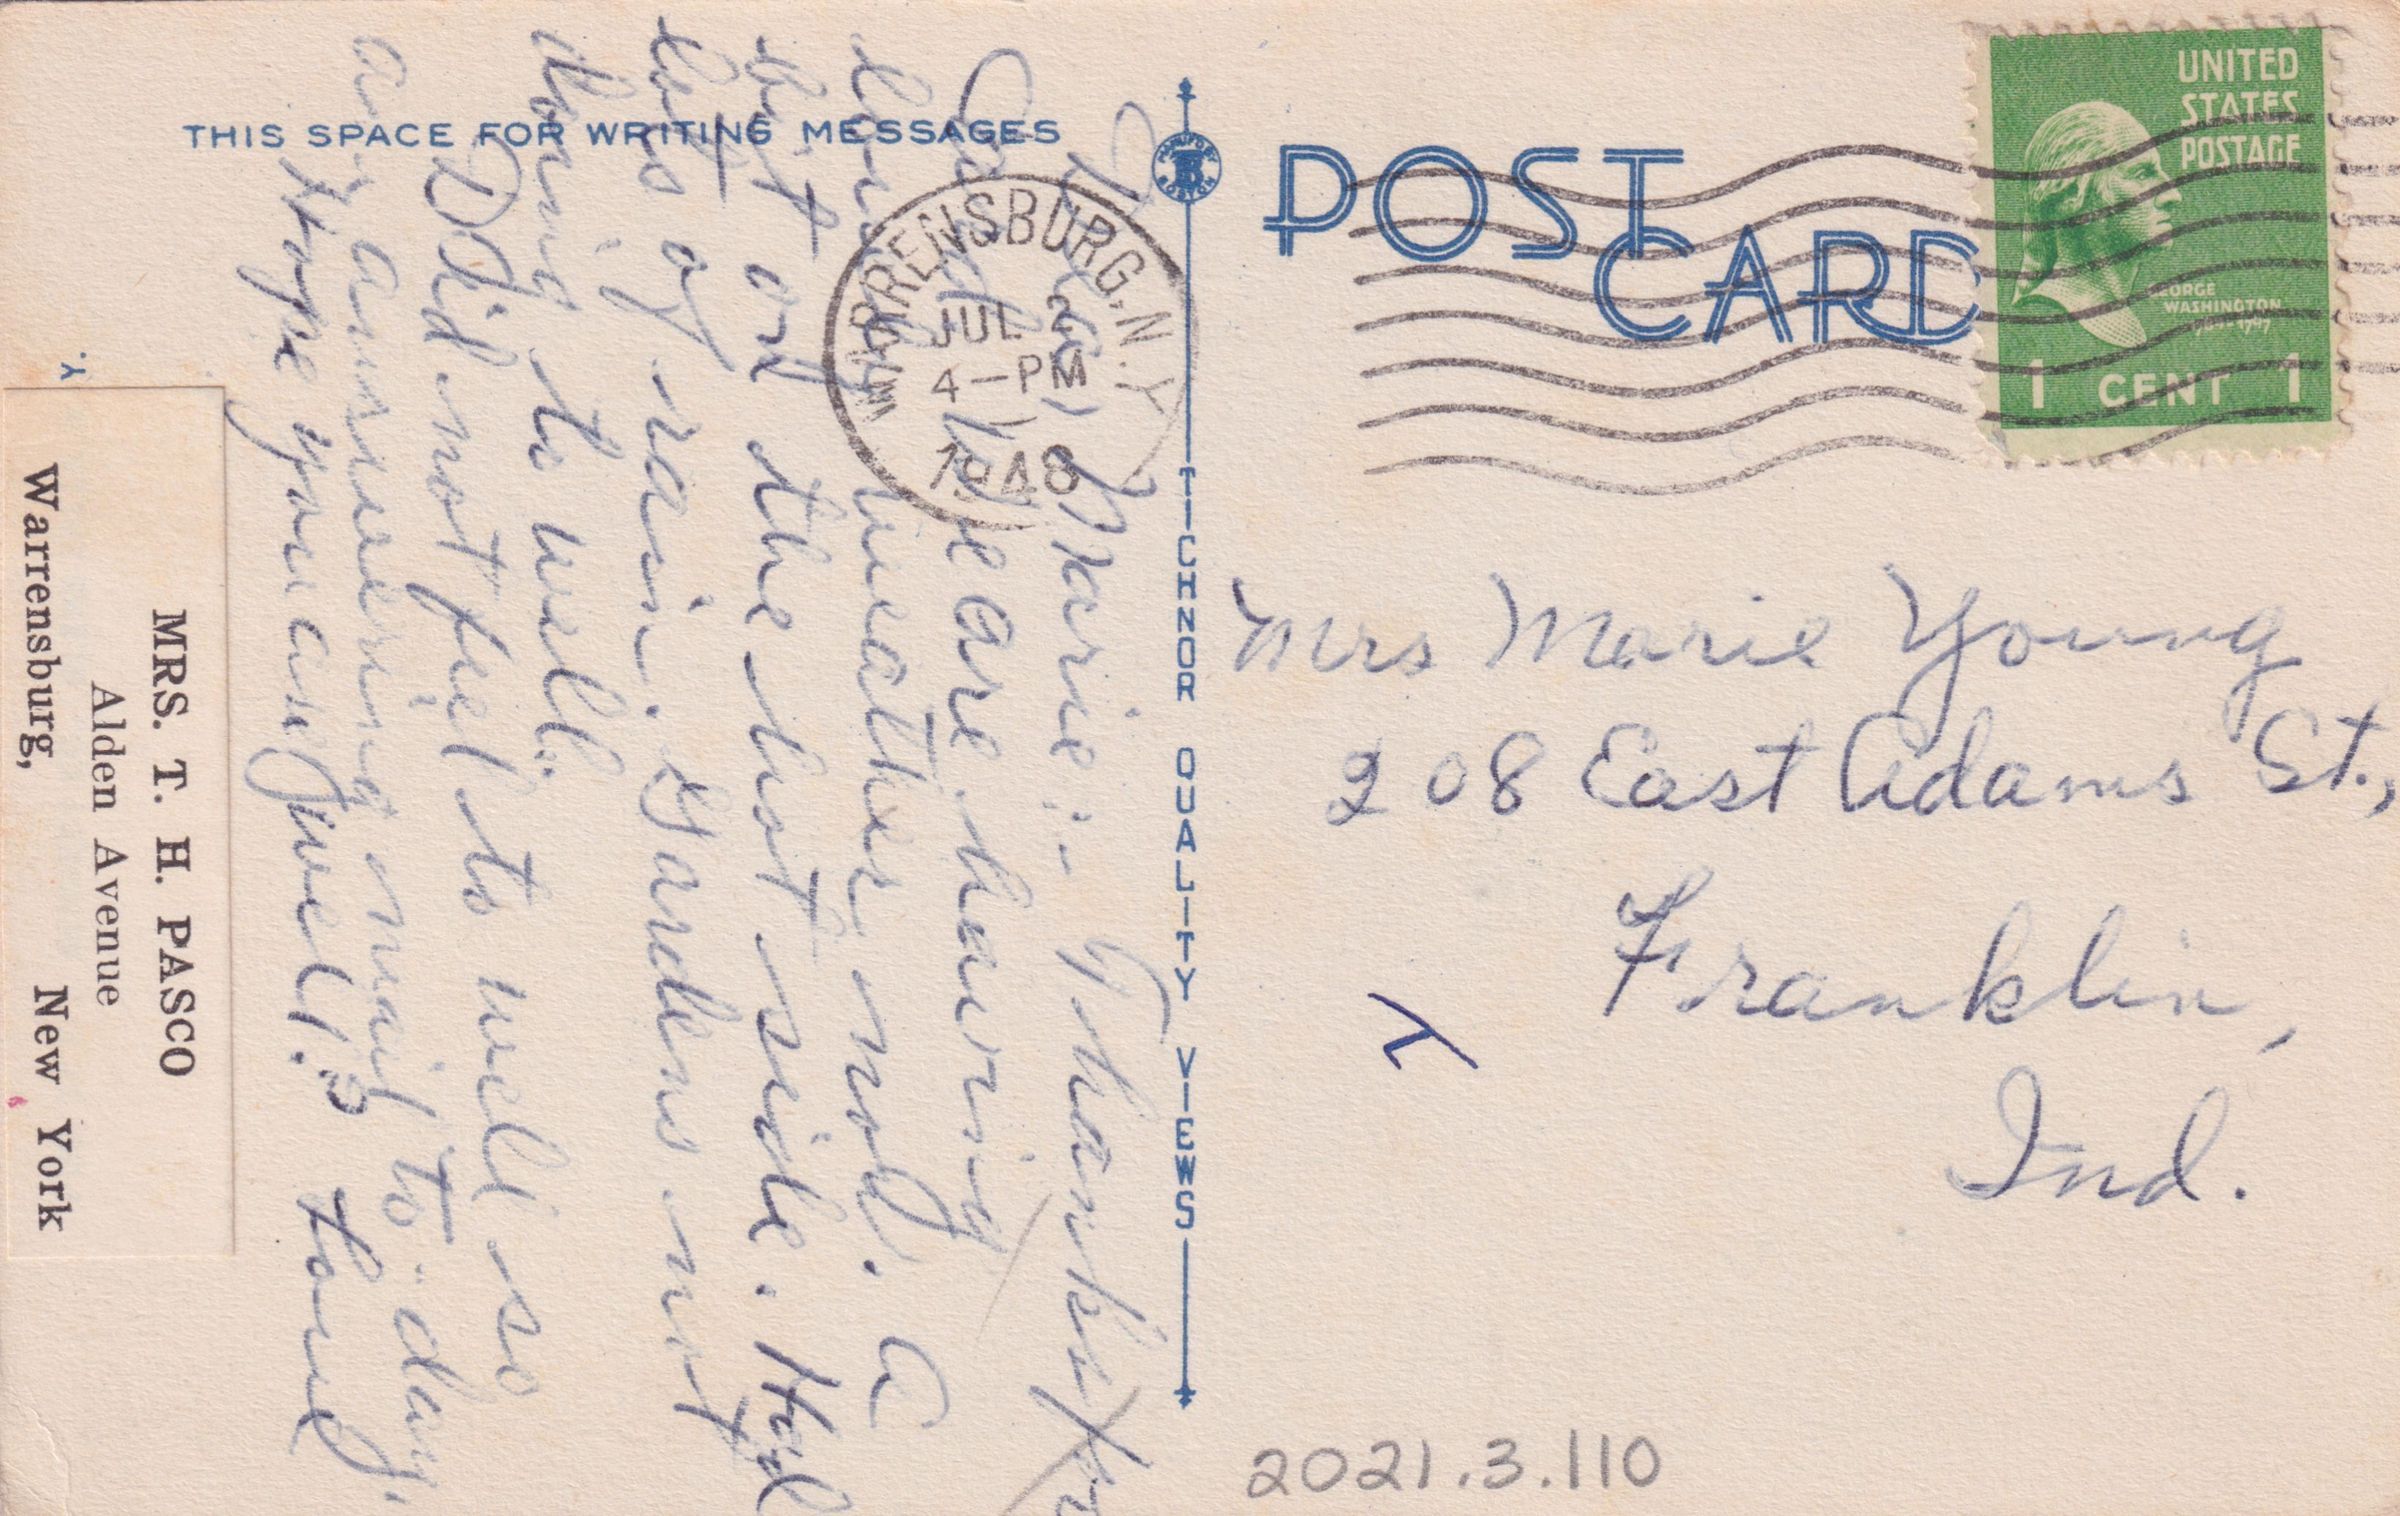 THIS SPACE FOR WRITING MESSAGES
Dear Marie:- Thanks for
Card. We are having
lovely weather now. a
bit on the hot side. Had
lots of rain. Gardens not
doing to well.
Did not feel to well so
am answering mail to-day.
Hope you are well.
MRS. T. H. PASCO
Alden Avenue
Warrensburg, New York
WARRENSBURG, N.Y.
JUL
4-PM
1948
TICHNOR QUALITY VIEWS
POST
CARD
UNITED
STATES
POSTAGE
GEORGE
WASHINGTON
1789-1797
1 CENT 1
Mrs Marie Young
208 East Adams St.,
Franklin,
Ind.
2021.3.110